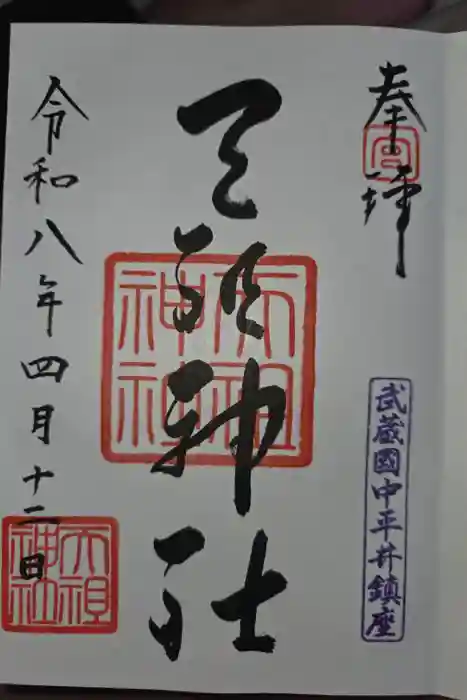 奉拝
武蔵國中平井鎮座
天祖神社
天祖
神社
令和八年四月十二日
天祖
神社